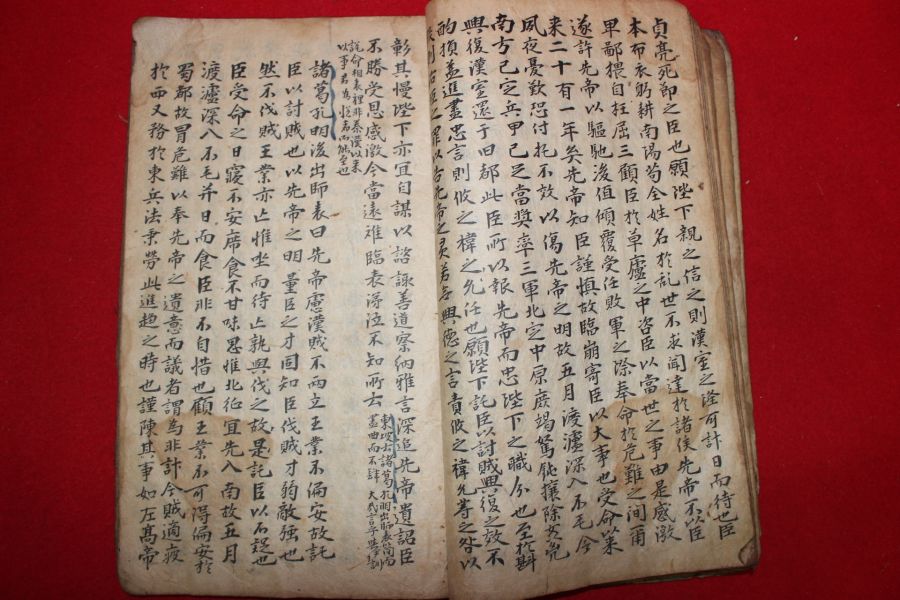 貞亮死節之臣也願陛下親之信之則漢室之隆可計日而待也臣
本布衣躬耕南陽苟全姓名於乱世不求聞達於諸侯先帝不以臣
卑鄙猥自枉屈三顧臣於草廬之中咨臣以當世之事由是感激
遂許先帝以驅馳後值傾覆受任敗軍之際奉命於危難之間爾
来二十有一年矣先帝知臣謹慎故臨崩寄臣以大事也受命以来
夙夜憂歎恐付托不效以傷先帝之明故五月渡瀘深入不毛今
南方已定兵甲已足當奬率三軍北定中原庶竭駑鈍攘除姦兇
興復漢室還于旧都此臣所以報先帝而忠陛下之職分也至於斟
酌損益進盡忠言則攸之褘之允任也願陛下託臣以討賊興復之效不
效則治臣之罪以告先帝之灵若無興德之言責攸之褘允等之咎以
彰其慢陛下亦宜自謀以諮諏善道察納雅言深追先帝遺詔臣
不勝受恩感激今當遠难臨表涕泣不知所云
東坡云諸葛孔明出師表簡而
盡曲而不肆大哉言乎與伊訓
說命相表裡非秦漢以来
以事君為悅者而能至也
諸葛孔明後出師表曰先帝慮漢賊不两立王業不偏安故託
臣以討賊也以先帝之明量臣之才固知臣伐賊才弱敵強也
然不伐賊王業亦亡惟坐而待亡孰與伐之故是託臣以不疑也
臣受命之日寢不安席食不甘味思惟北征宜先入南故五月
渡瀘深入不毛并日而食臣非不自惜也顧王業不可得偏安於
蜀都故冒危難以奉先帝之遺意而議者謂為非計今賊適疲
於西又務於東兵法乗勞此進趋之時也謹陳其事如左高帝